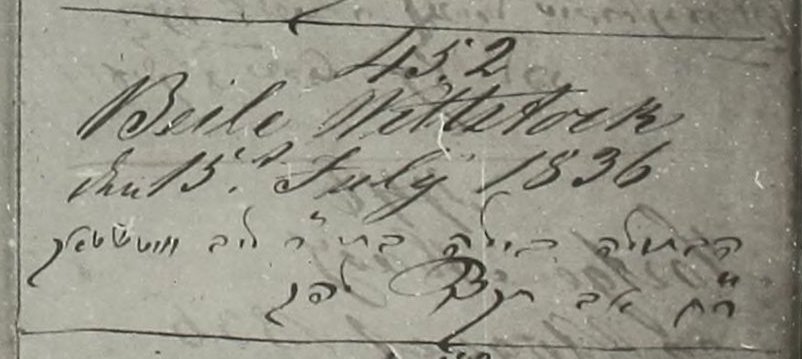 452
Beile Wittstock
den 15.t July 1836
הבתולה בילה בת ר' ליב וויטשטאק
ר״ח אב לפק